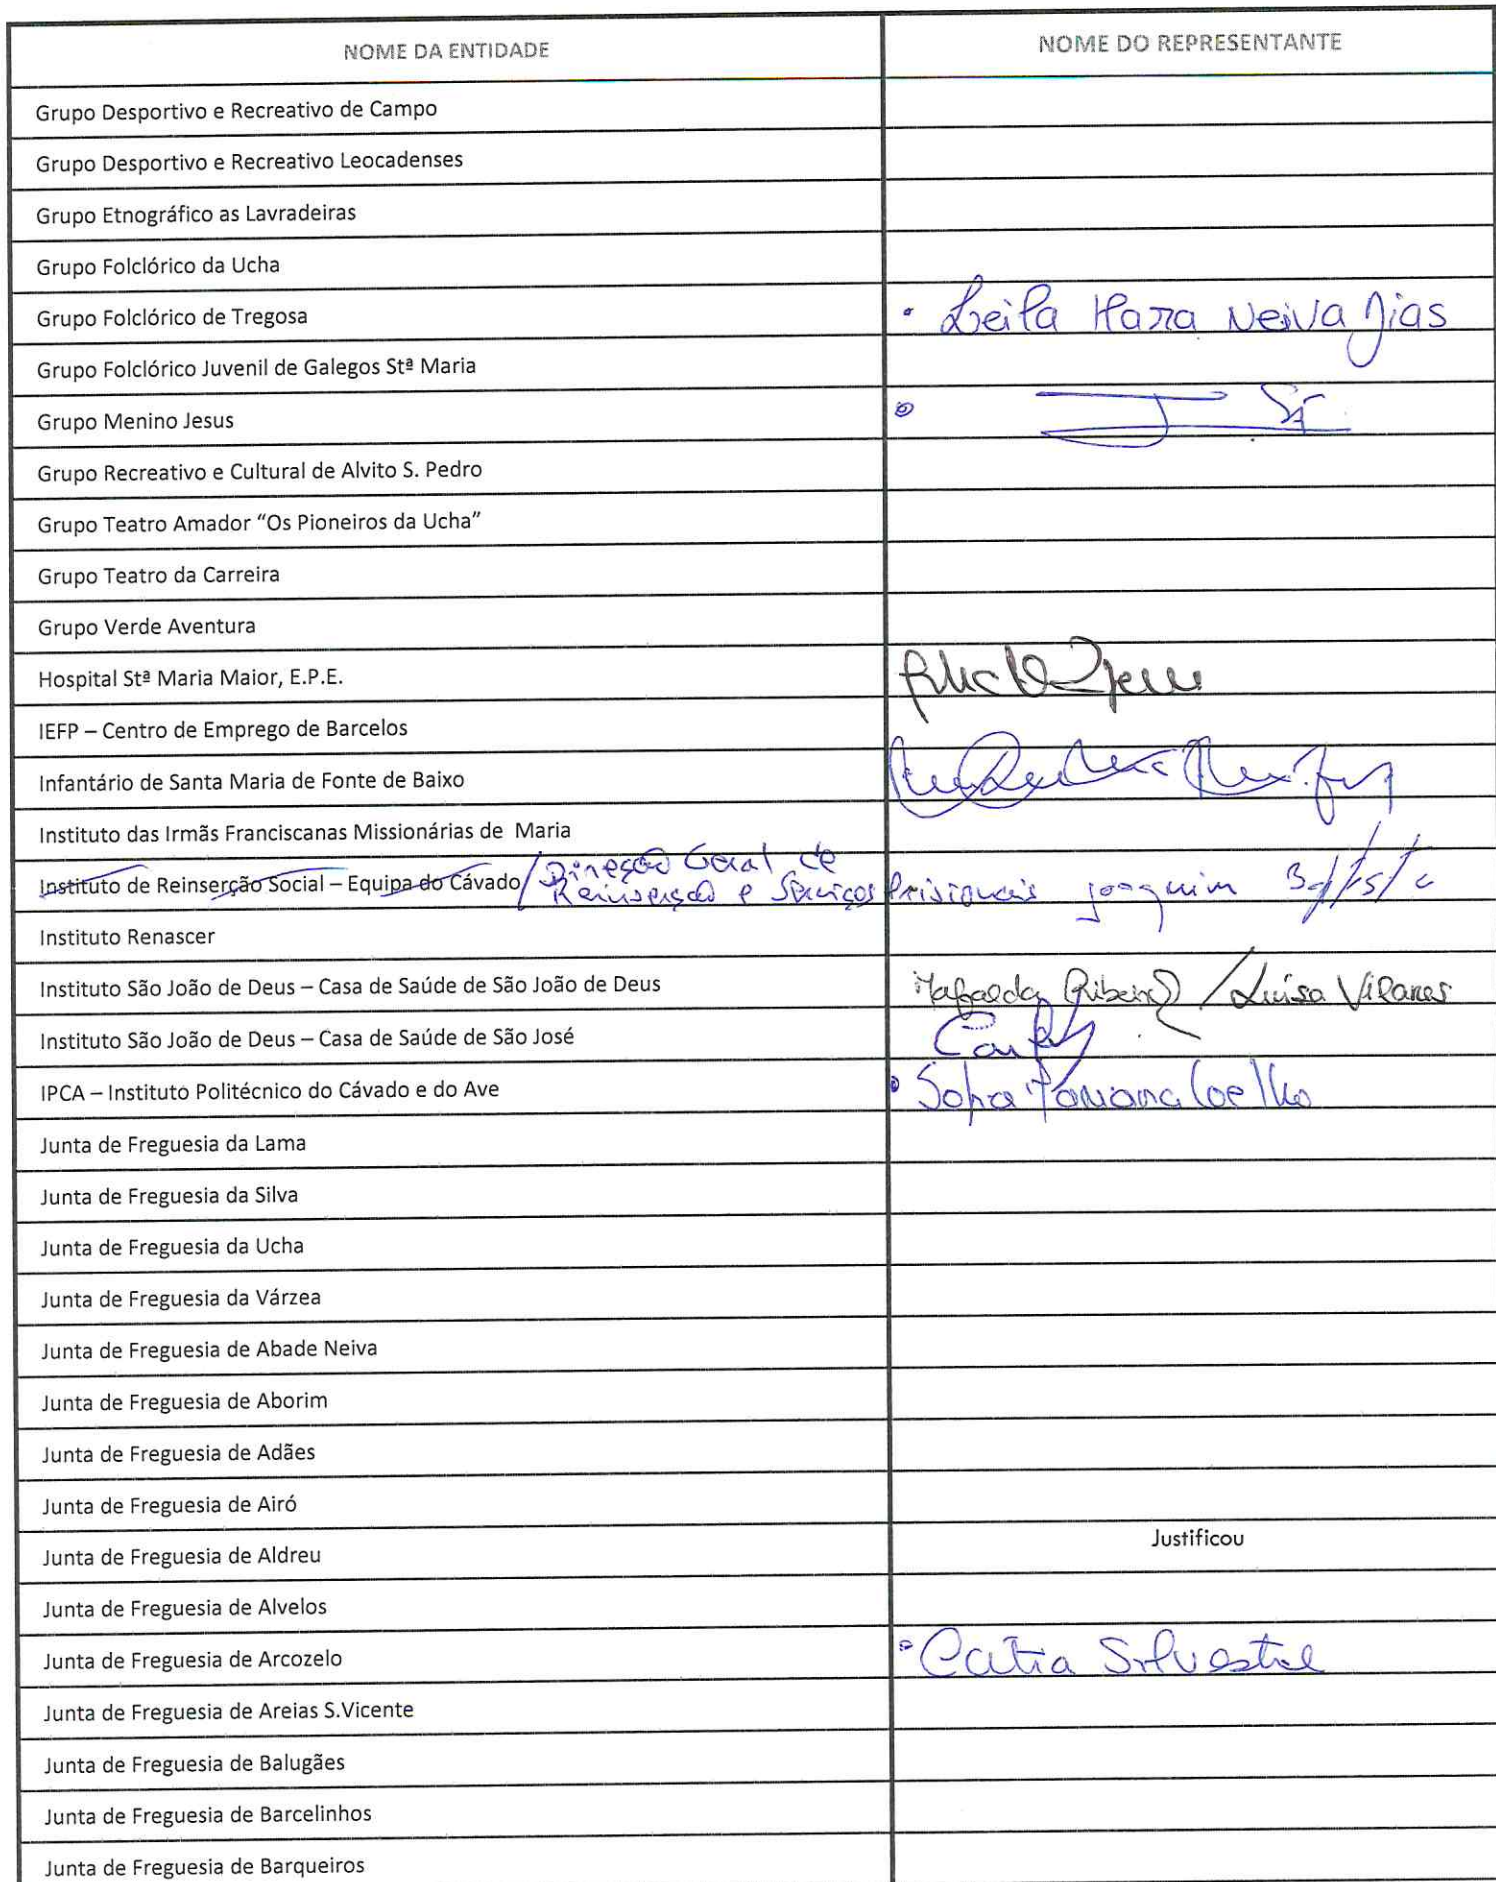 NOME DA ENTIDADE NOME DO REPRESENTANTE
Grupo Desportivo e Recreativo de Campo
Grupo Desportivo e Recreativo Leocadenses
Grupo Etnográfico as Lavradeiras
Grupo Folclórico da Ucha
Grupo Folclórico de Tregosa Leila Mara Neiva Dias
Grupo Folclórico Juvenil de Galegos Stª Maria
Grupo Menino Jesus
Grupo Recreativo e Cultural de Alvito S. Pedro
Grupo Teatro Amador “Os Pioneiros da Ucha”
Grupo Teatro da Carreira
Grupo Verde Aventura
Hospital Stª Maria Maior, E.P.E.
IEFP – Centro de Emprego de Barcelos
Infantário de Santa Maria de Fonte de Baixo
Instituto das Irmãs Franciscanas Missionárias de Maria
Instituto de Reinserção Social – Equipa do Cávado / Direção Geral de
Reinserção e Serviços Prisionais Joaquim
Instituto Renascer
Instituto São João de Deus – Casa de Saúde de São João de Deus Mafalda Ribeiro / Luísa Vilares
Instituto São João de Deus – Casa de Saúde de São José
IPCA – Instituto Politécnico do Cávado e do Ave Coelho
Junta de Freguesia da Lama
Junta de Freguesia da Silva
Junta de Freguesia da Ucha
Junta de Freguesia da Várzea
Junta de Freguesia de Abade Neiva
Junta de Freguesia de Aborim
Junta de Freguesia de Adães
Junta de Freguesia de Airó
Junta de Freguesia de Aldreu Justificou
Junta de Freguesia de Alvelos
Junta de Freguesia de Arcozelo Catia Silvestre
Junta de Freguesia de Areias S.Vicente
Junta de Freguesia de Balugães
Junta de Freguesia de Barcelinhos
Junta de Freguesia de Barqueiros